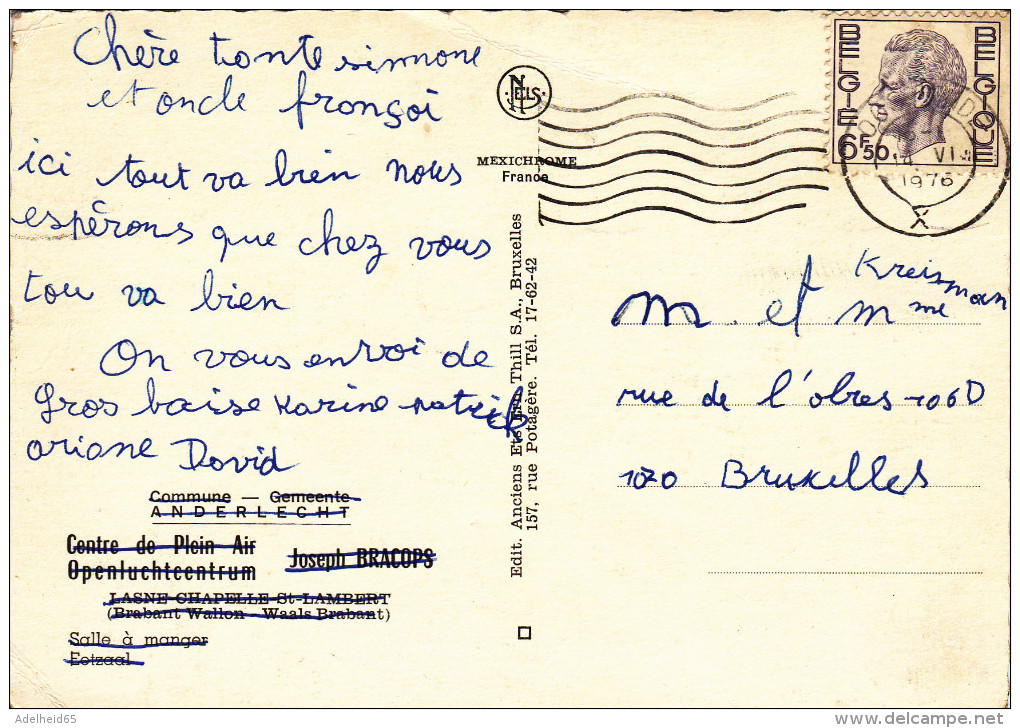 Chère tante simone
et oncle françoi
ici tout va bien nous
espérons que chez vous
tou va bien
On vous envoi de
gros baise Karine Patrick
ariane David
Commune — Gemeente
ANDERLECHT
Centre de Plein Air
Openluchtcentrum
Joseph BRACOPS
LASNE-CHAPELLE-St-LAMBERT
(Brabant Wallon - Waals Brabant)
Salle à manger
Eetzaal
NELS
MEXICHROME
France
Edit. Anciens Ets Ern. Thill S.A., Bruxelles
157, rue Potagère. Tél. 17-62-42
BELGIE BELGIQUE
6F50
VI
1976
X
Kreisman
M. et Mme
rue de l'obres 106D
1070 Bruxelles
Adelheid65
delcampe.net